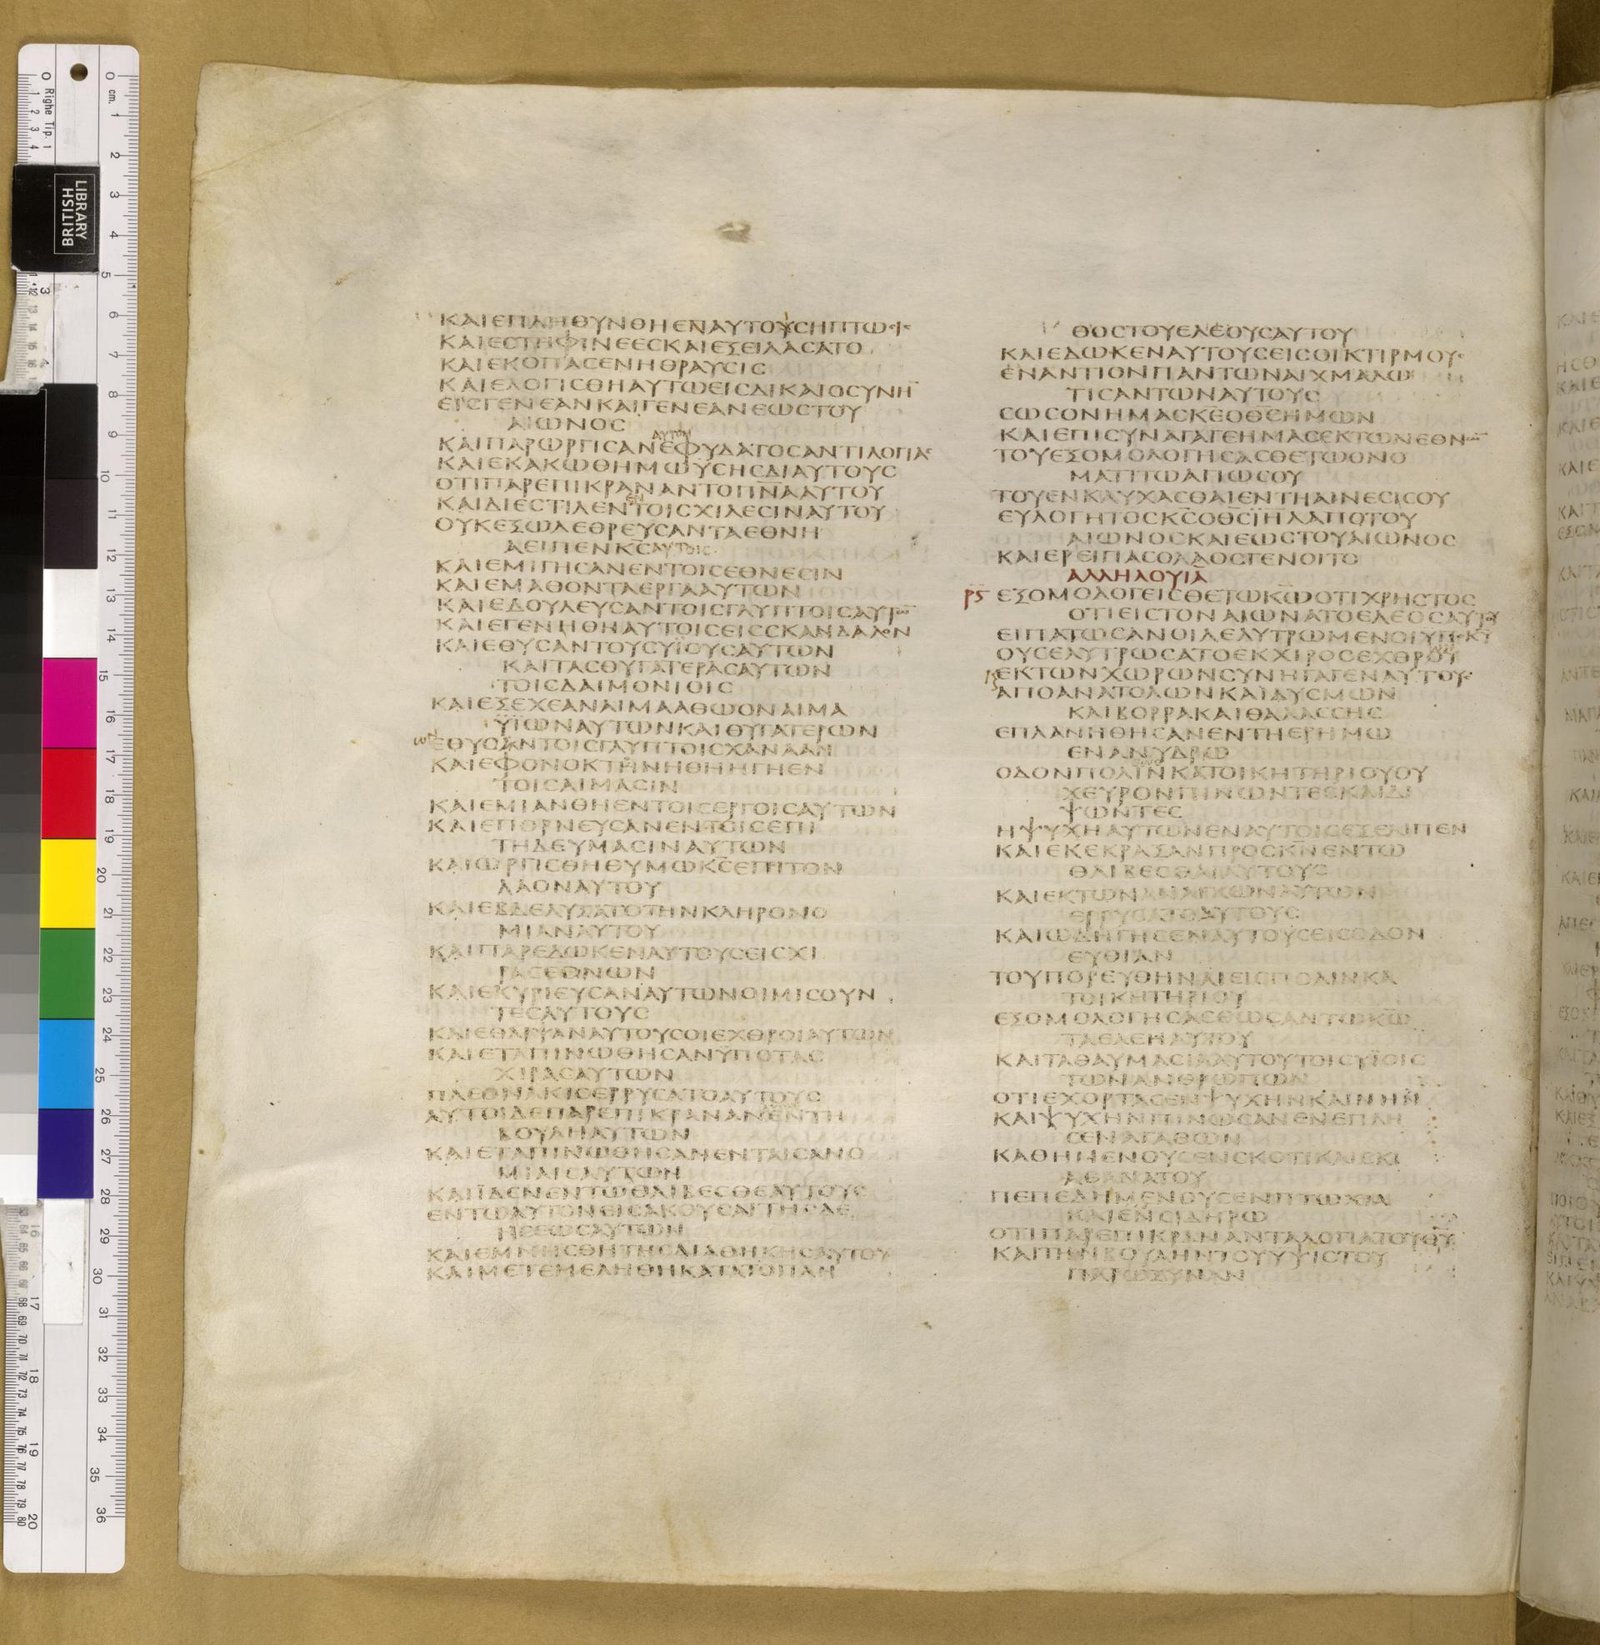 ΚΑΙΕΠΛΗΘΥΝΘΗΕΝΑΥΤΟΥCΗΠΤΩCΙC
ΚΑΙΕCΤΗΦΙΝΕΕCΚΑΙΕΞΕΙΛΑCΑΤΟ
ΚΑΙΕΚΟΠΑCΕΝΗΘΡΑΥCΙC
ΚΑΙΕΛΟΓΙCΘΗΑΥΤΩΕΙCΔΙΚΑΙΟCΥΝΗ̅
ΕΙCΓΕΝΕΑΝΚΑΙΓΕΝΕΑΝΕΩCΤΟΥ
ΑΙΩΝΟC
ΑΥΤΟΝ
ΚΑΙΠΑΡΩΡΓΙCΑΝΕΦΥΔΑΤΟCΑΝΤΙΛΟΓΙΑC
ΚΑΙΕΚΑΚΩΘΗΜΩΥCΗCΔΙΑΥΤΟΥC
ΟΤΙΠΑΡΕΠΙΚΡΑΝΑΝΤΟΠΝ̅ΑΑΥΤΟΥ
ΕΝ
ΚΑΙΔΙΕCΤΙΛΕΝΤΟΙCΧΙΛΕCΙΝΑΥΤΟΥ
ΟΥΚΕΞΩΛΕΘΡΕΥCΑΝΤΑΕΘΝΗ
ΑΕΙΠΕΝΚ̅C̅ΑΥΤΟΙC
ΚΑΙΕΜΙΓΗCΑΝΕΝΤΟΙCΕΘΝΕCΙΝ
ΚΑΙΕΜΑΘΟΝΤΑΕΡΓΑΑΥΤΩΝ
ΚΑΙΕΔΟΥΛΕΥCΑΝΤΟΙCΓΛΥΠΤΟΙCΑΥΤΩ̅
ΚΑΙΕΓΕΝΗΘΗΑΥΤΟΙCΕΙCCΚΑΝΔΑΛΟΝ
ΚΑΙΕΘΥCΑΝΤΟΥCΥΪΟΥCΑΥΤΩΝ
ΚΑΙΤΑCΘΥΓΑΤΕΡΑCΑΥΤΩΝ
ΤΟΙCΔΑΙΜΟΝΙΟΙC
ΚΑΙΕΞΕΧΕΑΝΑΙΜΑΑΘΩΟΝΑΙΜΑ
ΥΪΩΝΑΥΤΩΝΚΑΙΘΥΓΑΤΕΡΩΝ
ΩΝ
ΕΘΥCΑΝΤΟΙCΓΛΥΠΤΟΙCΧΑΝΑΑΝ
ΚΑΙΕΦΟΝΟΚΤΗΝΗΘΗΗΓΗΕΝ
ΤΟΙCΑΙΜΑCΙΝ
ΚΑΙΕΜΙΑΝΘΗΕΝΤΟΙCΕΡΓΟΙCΑΥΤΩΝ
ΚΑΙΕΠΟΡΝΕΥCΑΝΕΝΤΟΙCΕΠΙ
ΤΗΔΕΥΜΑCΙΝΑΥΤΩΝ
ΚΑΙΩΡΓΙCΘΗΘΥΜΩΚ̅C̅ΕΠΙΤΟΝ
ΛΑΟΝΑΥΤΟΥ
ΚΑΙΕΒΔΕΛΥΞΑΤΟΤΗΝΚΛΗΡΟΝΟ
ΜΙΑΝΑΥΤΟΥ
ΚΑΙΠΑΡΕΔΩΚΕΝΑΥΤΟΥCΕΙCΧΙ
ΡΑCΕΘΝΩΝ
ΚΑΙΕΚΥΡΙΕΥCΑΝΑΥΤΩΝΟΙΜΙCΟΥΝ
ΤΕCΑΥΤΟΥC
ΚΑΙΕΘΛΙΨΑΝΑΥΤΟΥCΟΙΕΧΘΡΟΙΑΥΤΩΝ
ΚΑΙΕΤΑΠΙΝΩΘΗCΑΝΥΠΟΤΑC
ΧΙΡΑCΑΥΤΩΝ
ΠΛΕΟΝΑΚΙCΕΡΡΥCΑΤΟΑΥΤΟΥC
ΑΥΤΟΙΔΕΠΑΡΕΠΙΚΡΑΝΑΝΕΝΤΗ
ΒΟΥΛΗΑΥΤΩΝ
ΚΑΙΕΤΑΠΙΝΩΘΗCΑΝΕΝΤΑΙCΑΝΟ
ΜΙΑΙCΑΥΤΩΝ
ΚΑΙΪΔΕΝΕΝΤΩΘΛΙΒΕCΘΕΑΥΤΟΥC
ΕΝΤΩΑΥΤΟΝΕΙCΑΚΟΥCΑΙΤΗCΔΕ
ΗCΕΩCΑΥΤΩΝ
ΚΑΙΕΜΝΗCΘΗΤΗCΔΙΑΘΗΚΗCΑΥΤΟΥ
ΚΑΙΜΕΤΕΜΕΛΗΘΗΚΑΤΑΤΟΠΛΗ
ΘΟCΤΟΥΕΛΕΟΥCΑΥΤΟΥ
ΚΑΙΕΔΩΚΕΝΑΥΤΟΥCΕΙCΟΙΚΤΙΡΜΟΥC
ΕΝΑΝΤΙΟΝΠΑΝΤΩΝΑΙΧΜΑΛΩ
ΤΙCΑΝΤΩΝΑΥΤΟΥC
CΩCΟΝΗΜΑCΚ̅Ε̅ΟΘ̅C̅ΗΜΩΝ
ΚΑΙΕΠΙCΥΝΑΓΑΓΕΗΜΑCΕΚΤΩΝΕΘΝΩ̅
ΤΟΥΕΞΟΜΟΛΟΓΗCΑCΘΕΤΩΟΝΟ
ΜΑΤΙΤΩΑΓΙΩCΟΥ
ΤΟΥΕΝΚΑΥΧΑCΘΑΙΕΝΤΗΑΙΝΕCΙCΟΥ
ΕΥΛΟΓΗΤΟCΚ̅C̅ΟΘ̅C̅Ι̅Η̅Λ̅ΑΠΟΤΟΥ
ΑΙΩΝΟCΚΑΙΕΩCΤΟΥΑΙΩΝΟC
ΚΑΙΕΡΕΙΠΑCΟΛΑΟCΓΕΝΟΙΤΟ
ΑΛΛΗΛΟΥΙΑ
ΡϚ ΕΞΟΜΟΛΟΓΕΙCΘΕΤΩΚ̅Ω̅ΟΤΙΧΡΗCΤΟC
ΟΤΙΕΙCΤΟΝΑΙΩΝΑΤΟΕΛΕΟCΑΥΤΟΥ
ΕΙΠΑΤΩCΑΝΟΙΛΕΛΥΤΡΩΜΕΝΟΙΥΠΟΚΥ
ΟΥCΕΛΥΤΡΩCΑΤΟΕΚΧΙΡΟCΕΧΘΡΟΥ
ΕΚΤΩΝΧΩΡΩΝCΥΝΗΓΑΓΕΝΑΥΤΟΥC
ΑΠΟΑΝΑΤΟΛΩΝΚΑΙΔΥCΜΩΝ
ΚΑΙΒΟΡΡΑΚΑΙΘΑΛΑCCΗC
ΕΠΛΑΝΗΘΗCΑΝΕΝΤΗΕΡΗΜΩ
ΕΝΑΝΥΔΡΩ
ΟΔΟΝΠΟΛΙΝΚΑΤΟΙΚΗΤΗΡΙΟΥΟΥ
ΧΕΥΡΟΝΠΙΝΩΝΤΕCΚΑΙΔΙ
ΨΩΝΤΕC
ΗΨΥΧΗΑΥΤΩΝΕΝΑΥΤΟΙCΕΞΕΛΙΠΕΝ
ΚΑΙΕΚΕΚΡΑΞΑΝΠΡΟCΚ̅Ν̅ΕΝΤΩ
ΘΛΙΒΕCΘΑΙΑΥΤΟΥC
ΚΑΙΕΚΤΩΝΑΝΑΓΚΩΝΑΥΤΩΝ
ΕΡΡΥCΑΤΟΑΥΤΟΥC
ΚΑΙΩΔΗΓΗCΕΝΑΥΤΟΥCΕΙCΟΔΟΝ
ΕΥΘΙΑΝ
ΤΟΥΠΟΡΕΥΘΗΝΑΙΕΙCΠΟΛΙΝΚΑ
ΤΟΙΚΗΤΗΡΙΟΥ
ΕΞΟΜΟΛΟΓΗCΑCΘΩCΑΝΤΩΚ̅Ω̅
ΤΑΕΛΕΗΑΥΤΟΥ
ΚΑΙΤΑΘΑΥΜΑCΙΑΑΥΤΟΥΤΟΙCΥΪΟΙC
ΤΩΝΑΝΘΡΩΠΩΝ
ΟΤΙΕΧΟΡΤΑCΕΝΨΥΧΗΝΚΑΙΝΗΝ
ΚΑΙΨΥΧΗΝΠΙΝΩCΑΝΕΝΕΠΛΗ
CΕΝΑΓΑΘΩΝ
ΚΑΘΗΜΕΝΟΥCΕΝCΚΟΤΙΚΑΙCΚΙ
ΑΘΑΝΑΤΟΥ
ΠΕΠΕΔΗΜΕΝΟΥCΕΝΠΤΩΧΙΑ
ΚΑΙΕΝCΙΔΗΡΩ
ΟΤΙΠΑΡΕΠΙΚΡΑΝΑΝΤΑΛΟΓΙΑΤΟΥΘ̅Υ̅
ΚΑΙΤΗΝΒΟΥΛΗΝΤΟΥΥΨΙCΤΟΥ
ΠΑΡΩΞΥΝΑΝ
BRITISH
LIBRARY
Righe Tip.
cm.